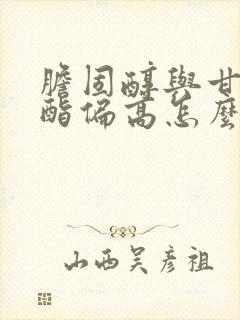 膽固醇與甘
酯偏高怎麼
山西吴彦祖